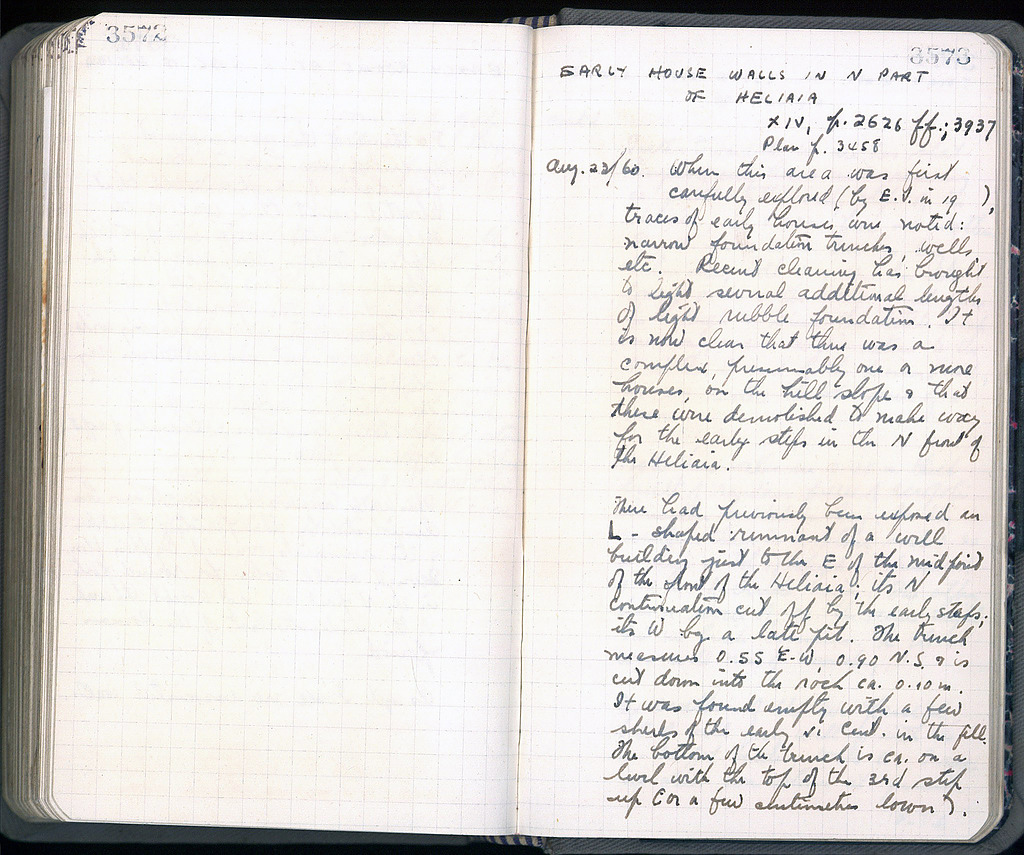 3572
3573
EARLY HOUSE WALLS IN N PART
OF HELIAIA
XIV, p. 2626 ff.; 3937
Plan p. 3458
Aug. 23/60. When this area was first
carefully explored (by E.V. in 19 ),
traces of early houses were noted:
narrow foundation trenches, wells,
etc. Recent cleaning has brought
to light several additional lengths
of light rubble foundation. It
is now clear that there was a
complex presumably one or more
houses, on the hill slope & that
these were demolished to make way
for the early steps in the N front of
the Heliaia.
There had previously been exposed an
L-shaped remnant of a well
building just to the E of the mid point
of the front of the Heliaia; its N
continuation cut off by the early steps;
its W by a late pit. The trench
measures 0.55 E-W, 0.90 N.S. & is
cut down into the rock ca. 0.10 m.
It was found empty with a few
sherds of the early vi cent. in the fill.
The bottom of the trench is ca. on a
level with the top of the 3rd step
up (or a few centimetres lower).